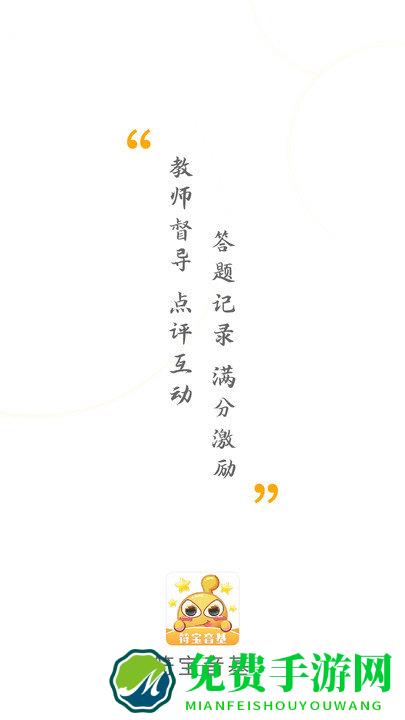 “
教师督导 点评互动
答题记录 满分激励
”
符宝音基
符宝音基
免费手游网
MIANFEISHOUYOUWANG